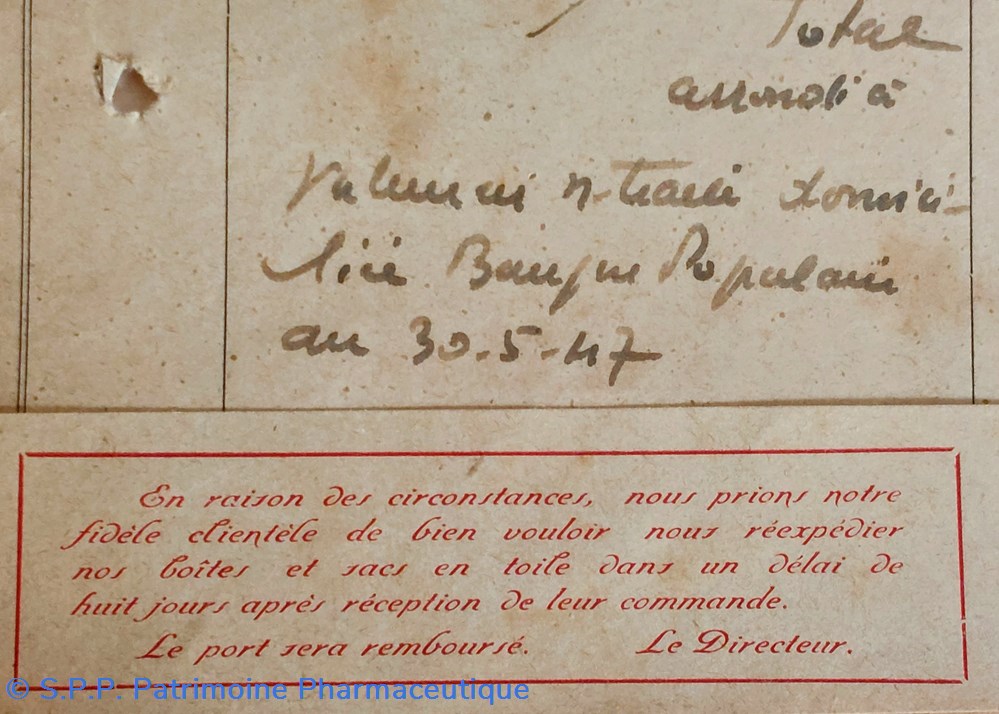 Total
arrondi à
Valeur en n-traite domici-
liée Banque Populaire
au 30-5-47
En raison des circonstances, nous prions notre
fidèle clientèle de bien vouloir nous réexpédier
nos boîtes et sacs en toile dans un délai de
huit jours après réception de leur commande.
Le port sera remboursé. Le Directeur.
© S.P.P. Patrimoine Pharmaceutique